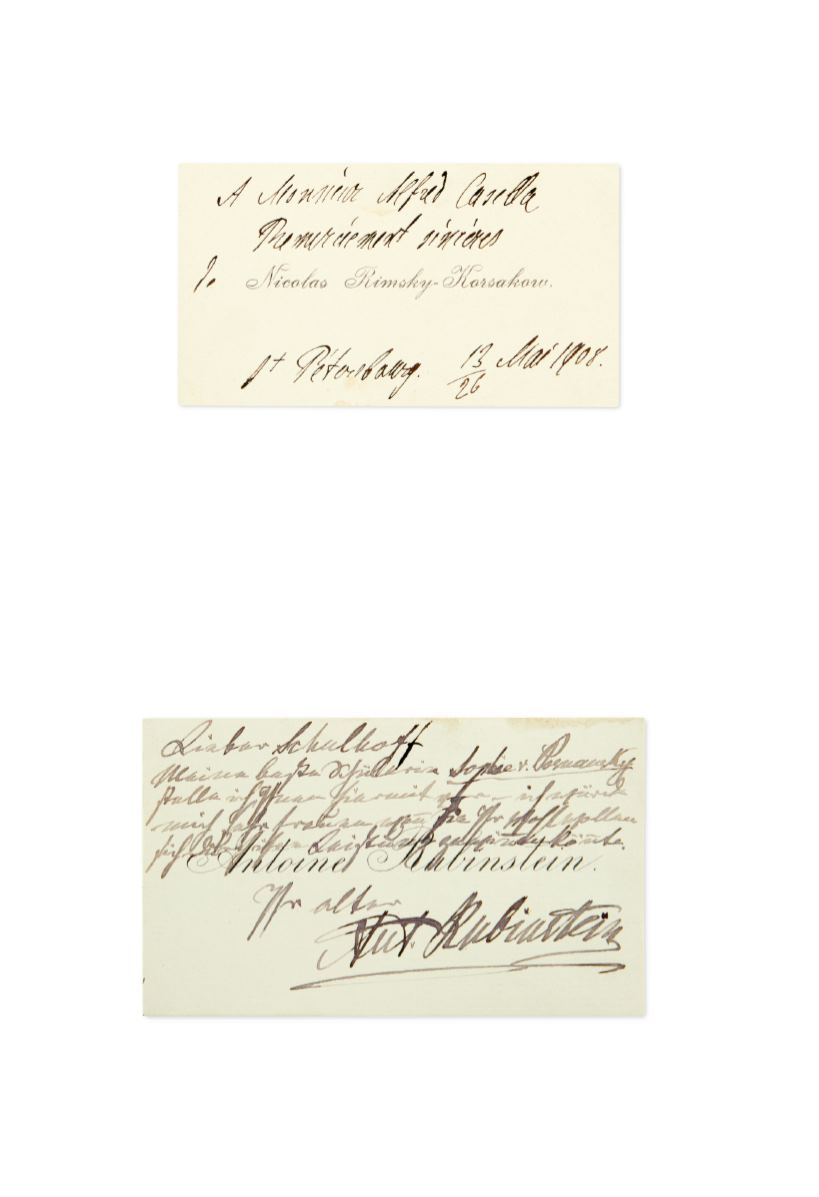 A Monsieur Alfred Casella
Remerciement sincères
de Nicolas Rimsky-Korsakow.
St Pétersbourg. 13/26 Mai 1908.
Lieber Schulhoff
Meine beste Schülerin Sophie v. Poznansky
stelle ich Ihnen hiermit vor – ich würde
mich sehr freuen wenn Sie Ihr Wohlwollen
sich
Antoine Rubinstein.
Ihr alter
Ant. Rubinstein